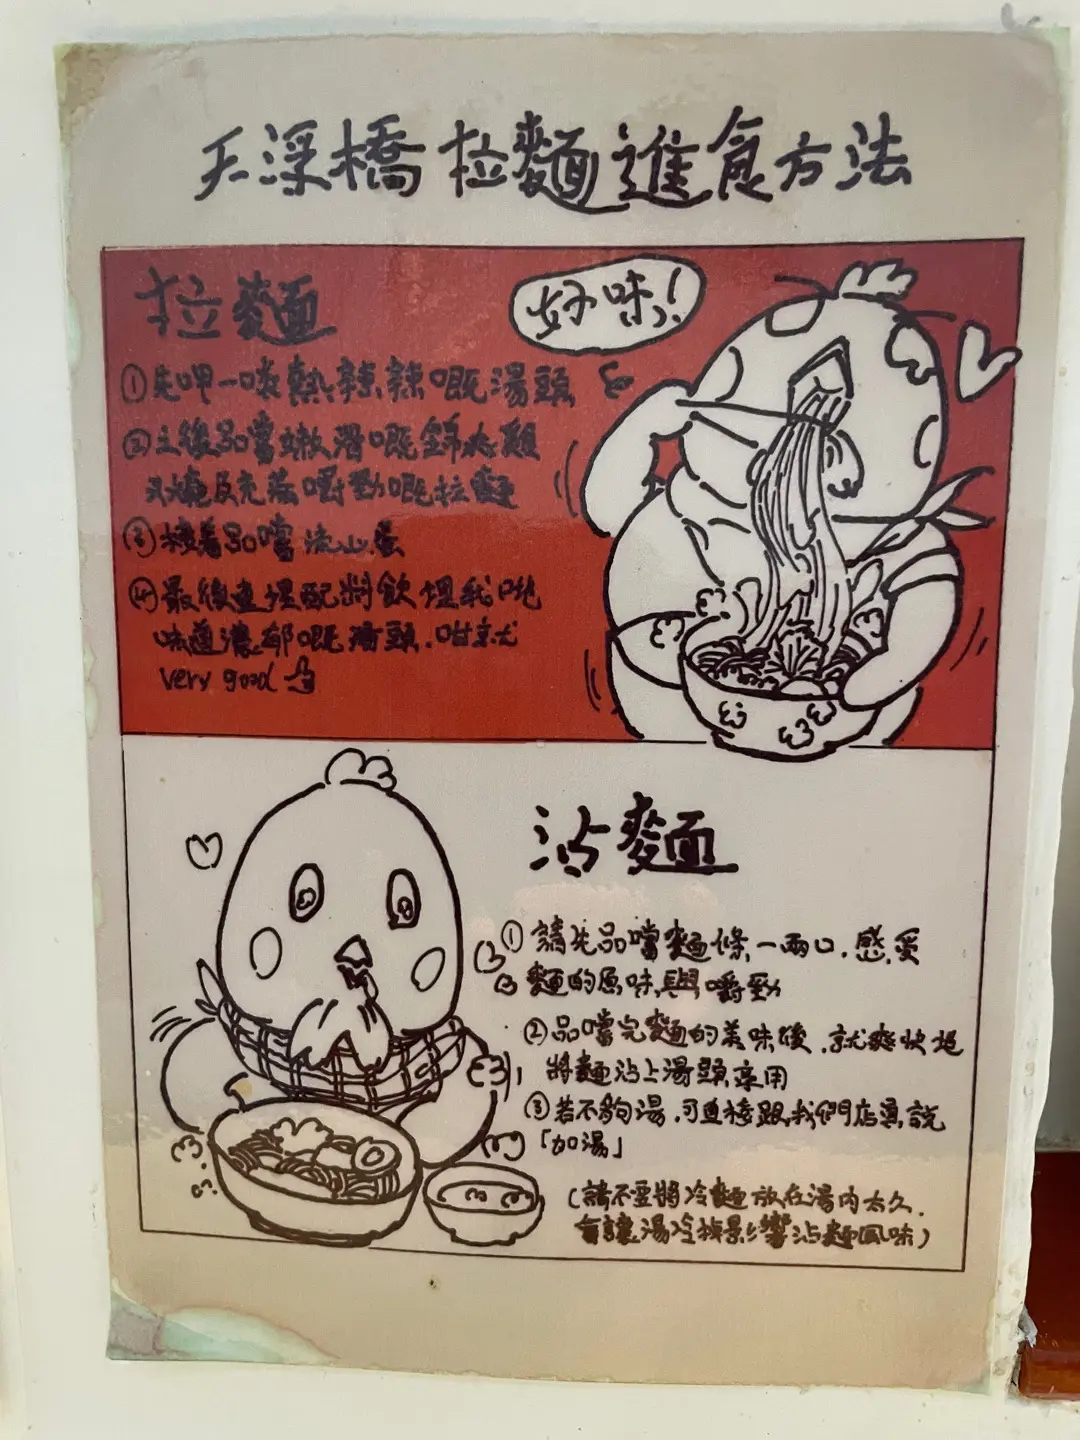 天浮橋 拉麵進食方法
拉麵
好味!
①先呷一啖熱辣辣嘅湯頭
②之後品嚐嫩滑嘅雞
叉燒及充滿嚼勁嘅拉麵
③接著品嚐流心蛋
④最後連埋配料飲埋我哋
味道濃郁嘅湯頭,咁就
very good
沾麵
①請先品嚐麵條,一兩口,感受
麵的原味與嚼勁
②品嚐完麵的美味後,就爽快地
將麵沾上湯頭享用
③若不夠湯,可直接跟我們店員說
「加湯」
(請不要將冷麵放在湯內太久,
會讓湯冷掉影響沾麵風味)